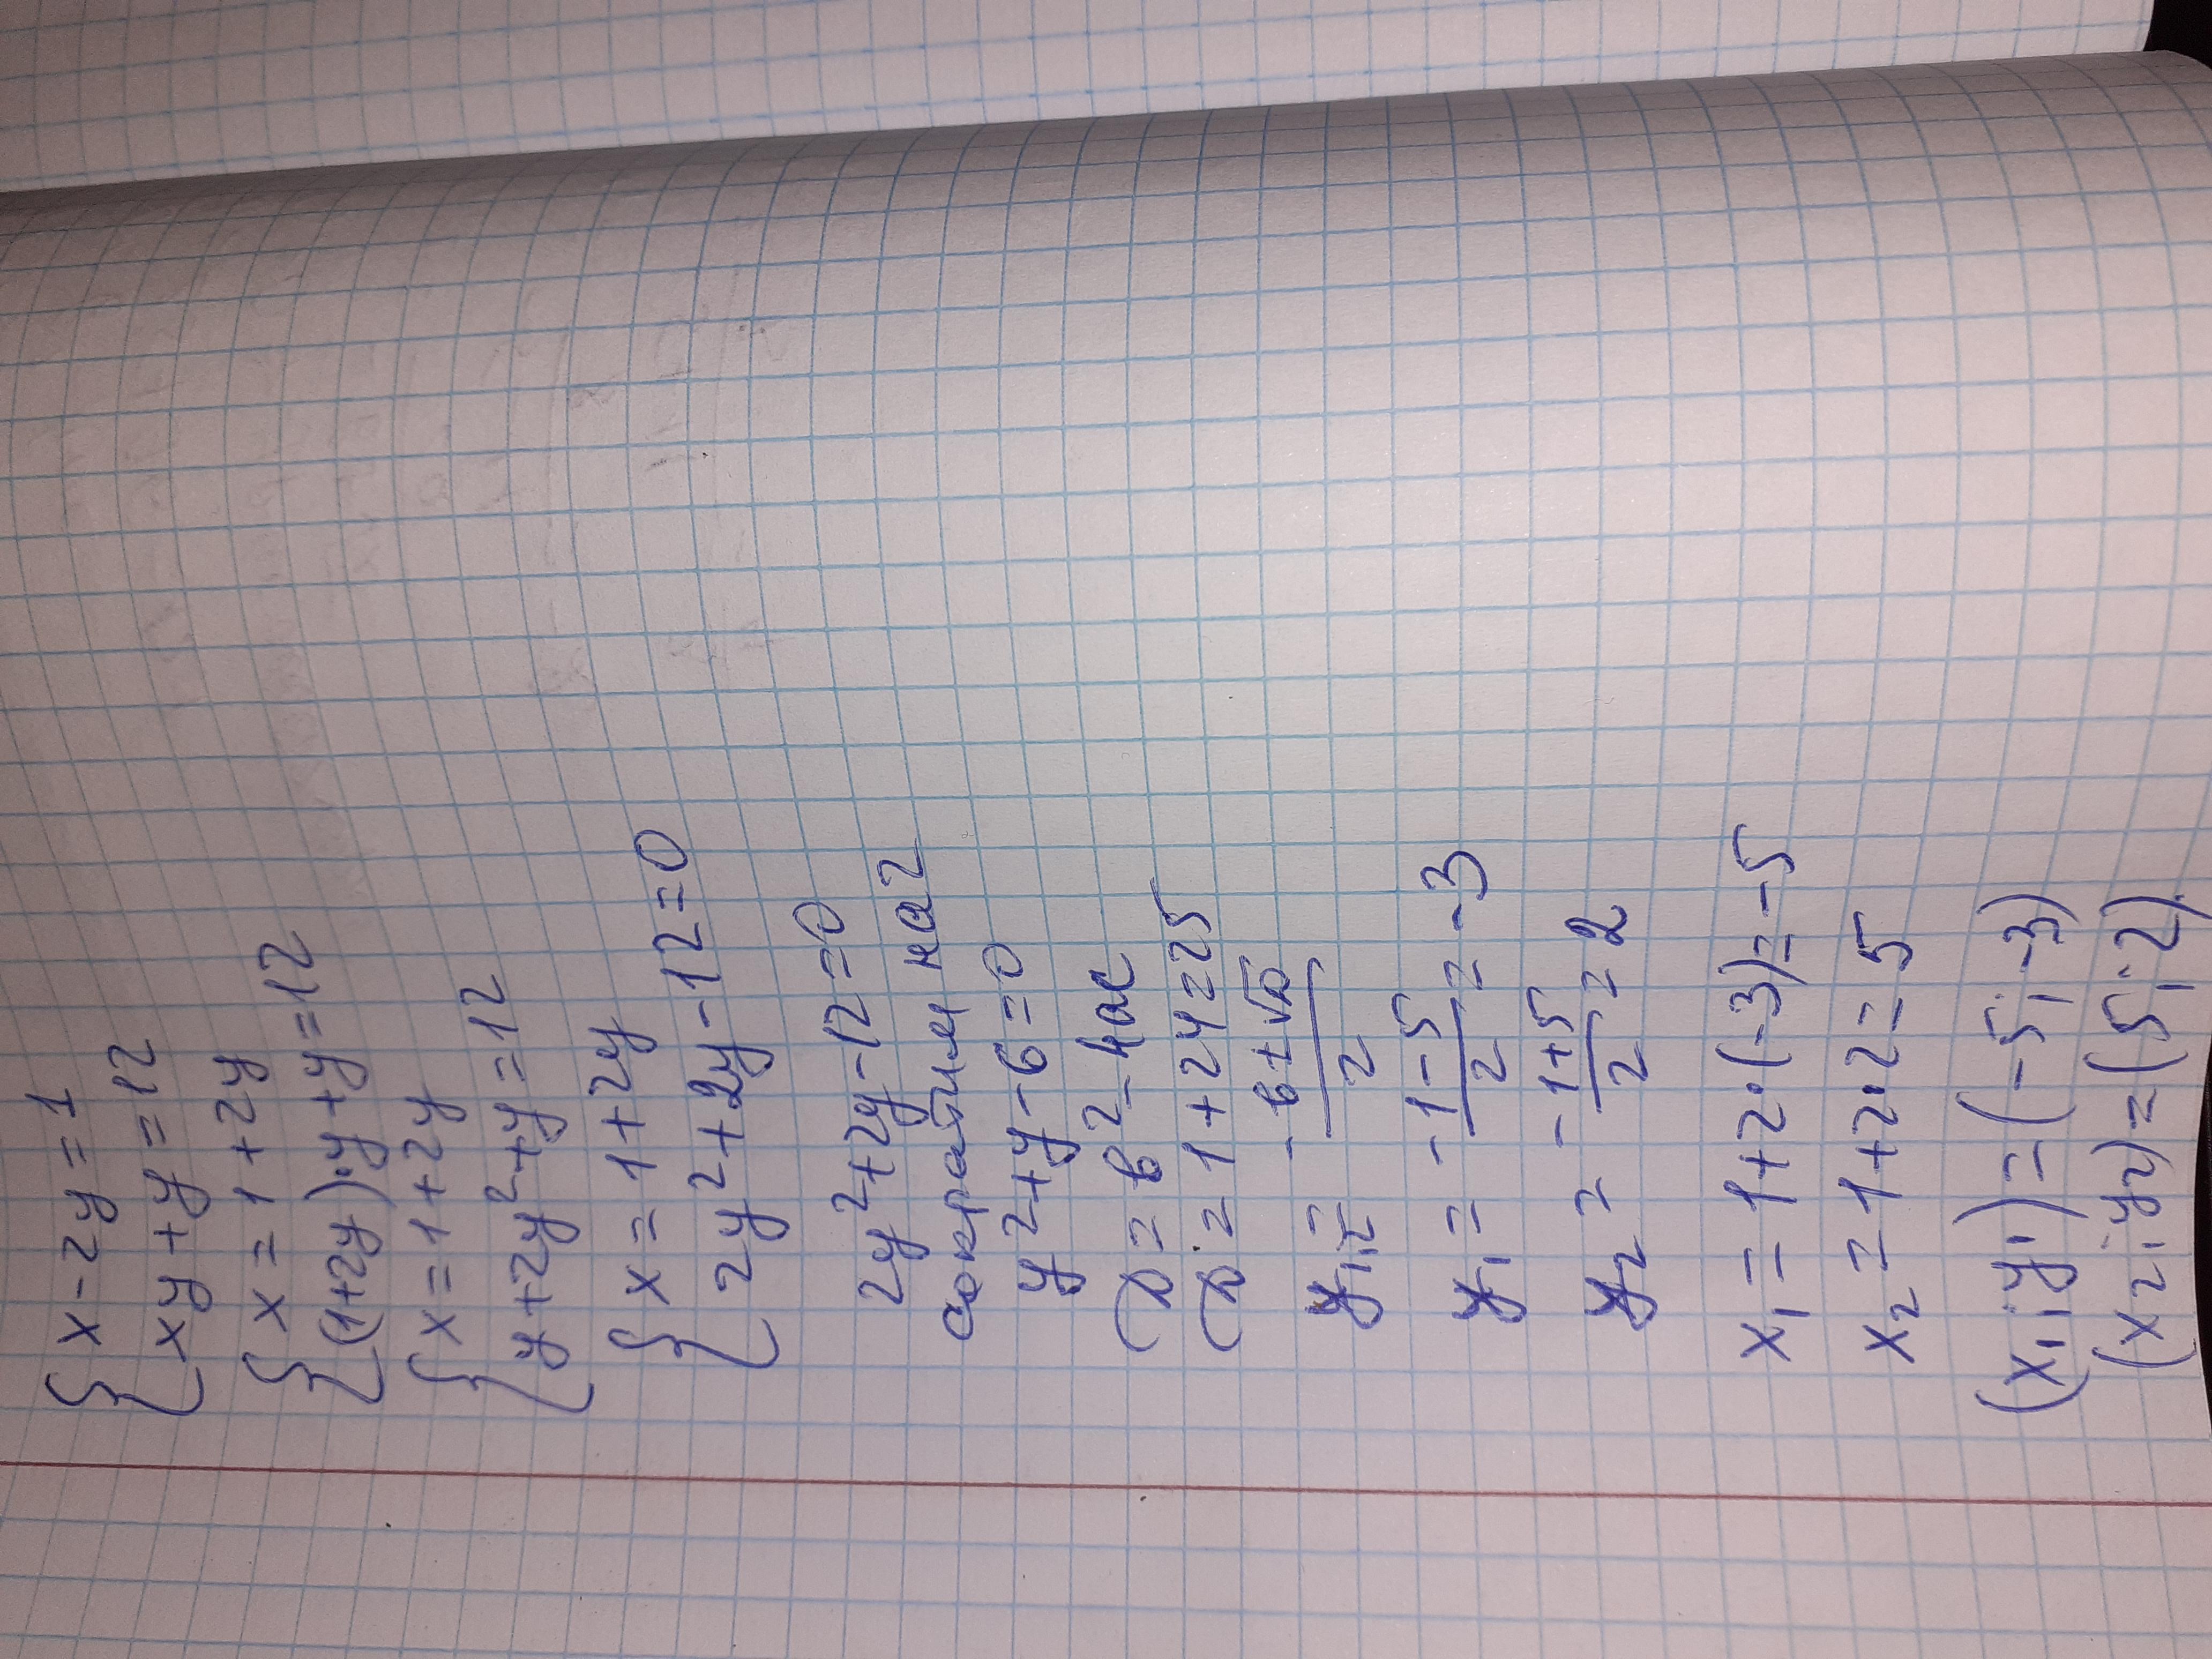 { x - 2y = 1
{ xy + y = 12
{ x = 1 + 2y
{ (1+2y)·y + y = 12
{ x = 1 + 2y
{ y + 2y² + y = 12
{ x = 1 + 2y
{ 2y² + 2y - 12 = 0
2y² + 2y - 12 = 0
сократим на 2
y² + y - 6 = 0
D = b² - 4ac
D = 1 + 24 = 25
y₁,₂ = (-b ± √D)/2
y₁ = (-1-5)/2 = -3
y₂ = (-1+5)/2 = 2
x₁ = 1 + 2·(-3) = -5
x₂ = 1 + 2·2 = 5
(x₁; y₁) = (-5; -3)
(x₂; y₂) = (5; 2).